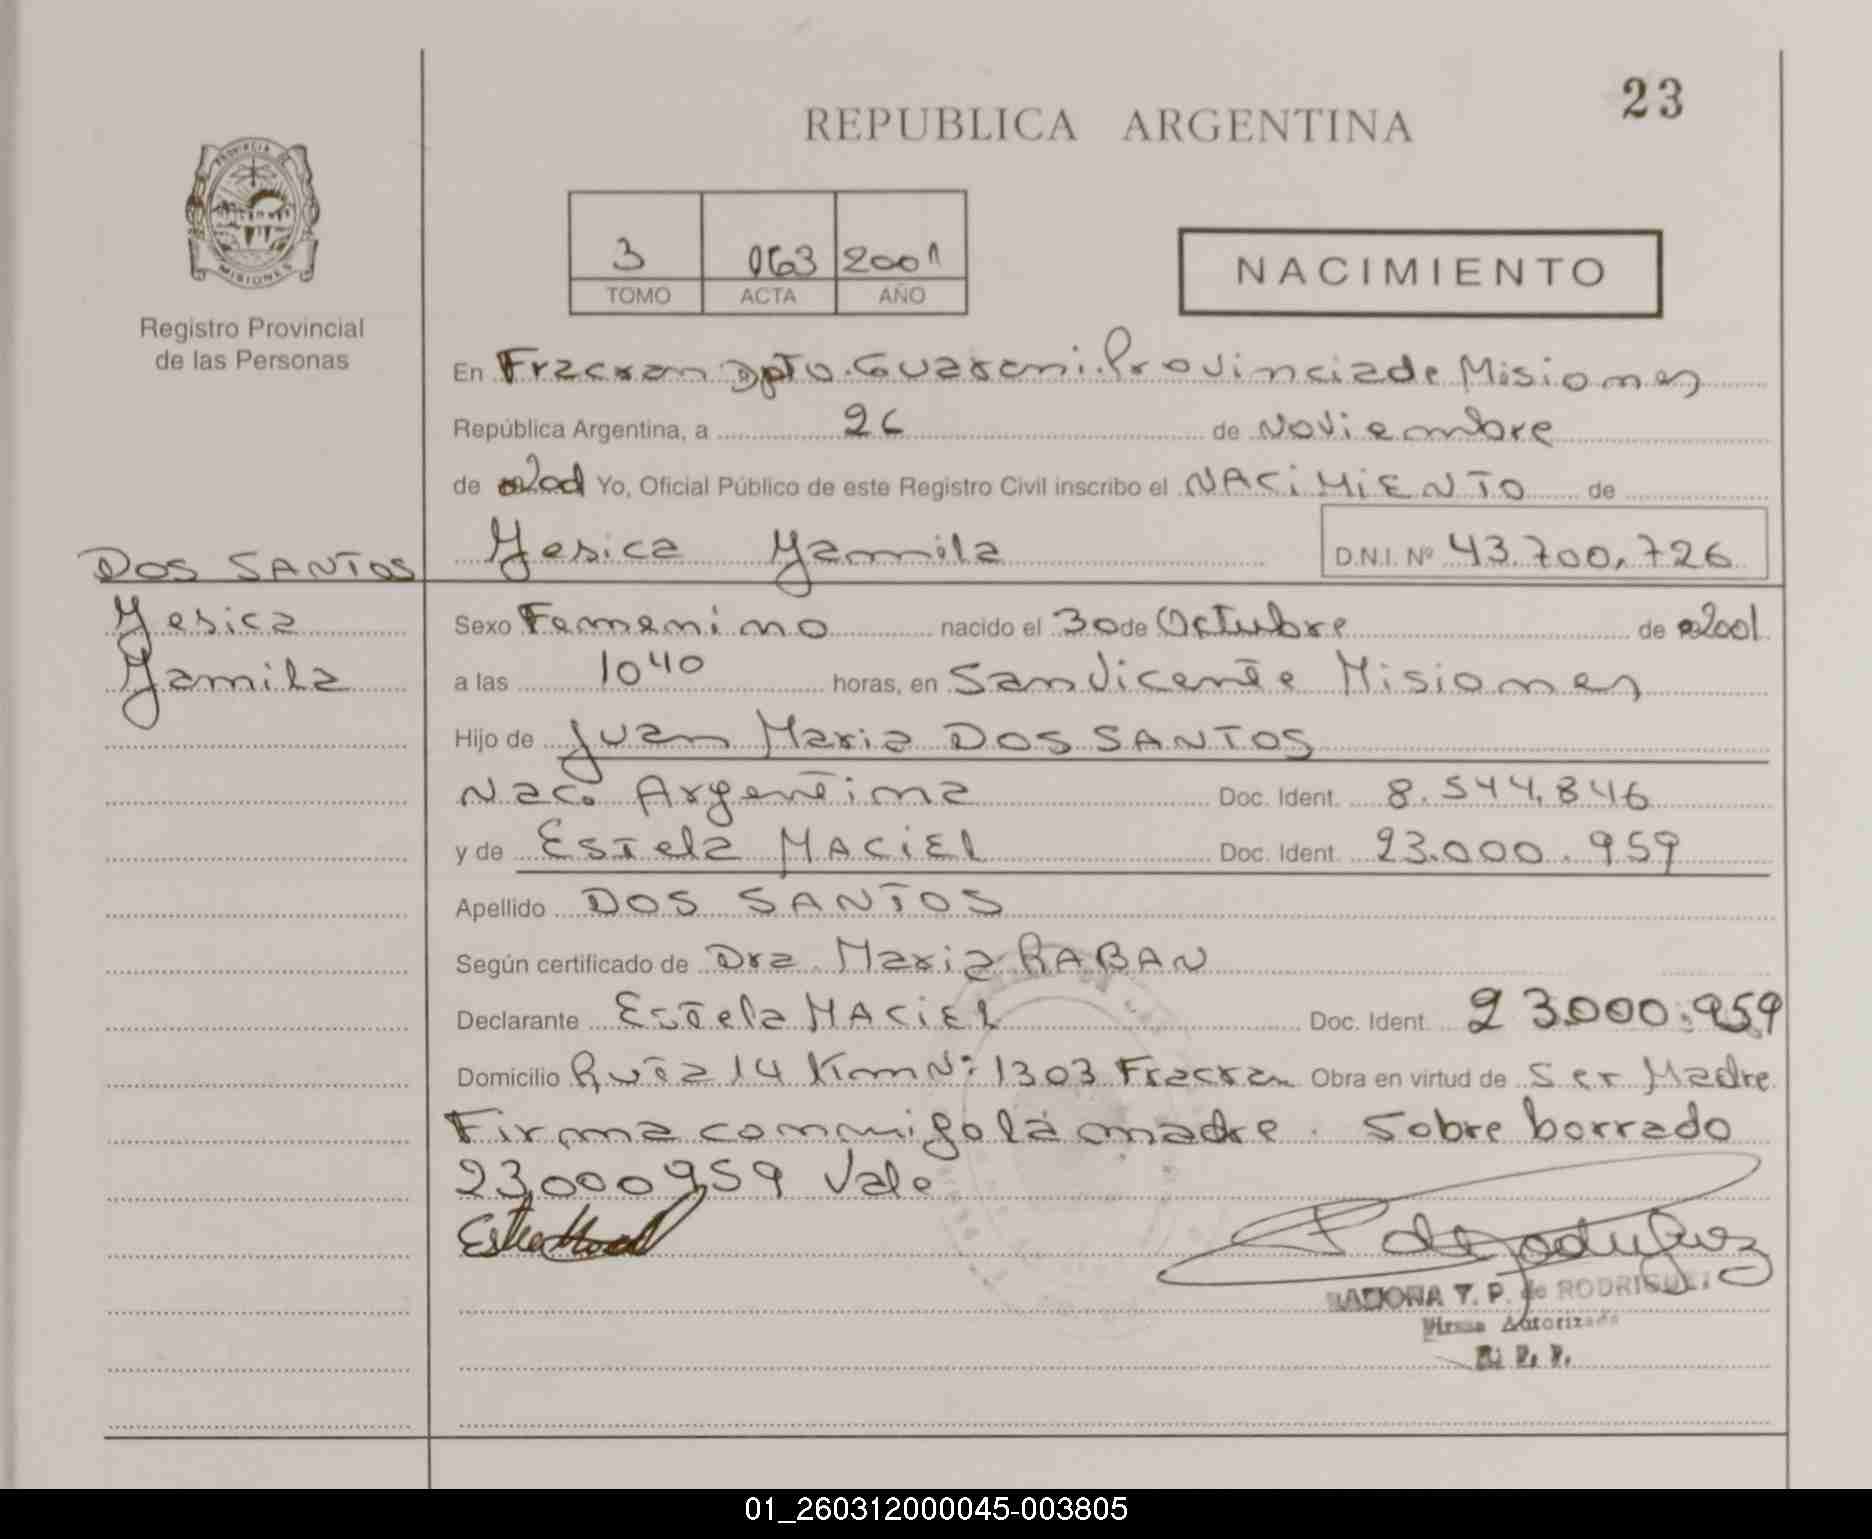 23
REPUBLICA ARGENTINA
PROVINCIA DE
MISIONES
Registro Provincial
de las Personas
3 063 2001
TOMO ACTA AÑO
NACIMIENTO
En Fracran Dpto. Guarani. Provincia de Misiones
República Argentina, a 26 de Noviembre
de 2001 Yo, Oficial Público de este Registro Civil inscribo el NACIMIENTO de
Yesica Yamila D.N.I. Nº 43.700.726
DOS SANTOS
Yesica
Yamila
Sexo Femenino nacido el 30 de Octubre de 2001
a las 10 40 horas, en San Vicente Misiones
Hijo de Juan Maria DOS SANTOS
Nac. Argentina Doc. Ident. 8.544.846
y de Estela MACIEL Doc. Ident. 23.000.959
Apellido DOS SANTOS
Según certificado de Dra. Maria RABAN
Declarante Estela MACIEL Doc. Ident. 23.000.959
Domicilio Ruta 14 Km Nº 1303 Fracran Obra en virtud de Ser Madre
Firma conmigo la madre. Sobre borrado
23.000959 Vale
T. P. de RODRIGUEZ
Firma Autorizada
01_260312000045-003805